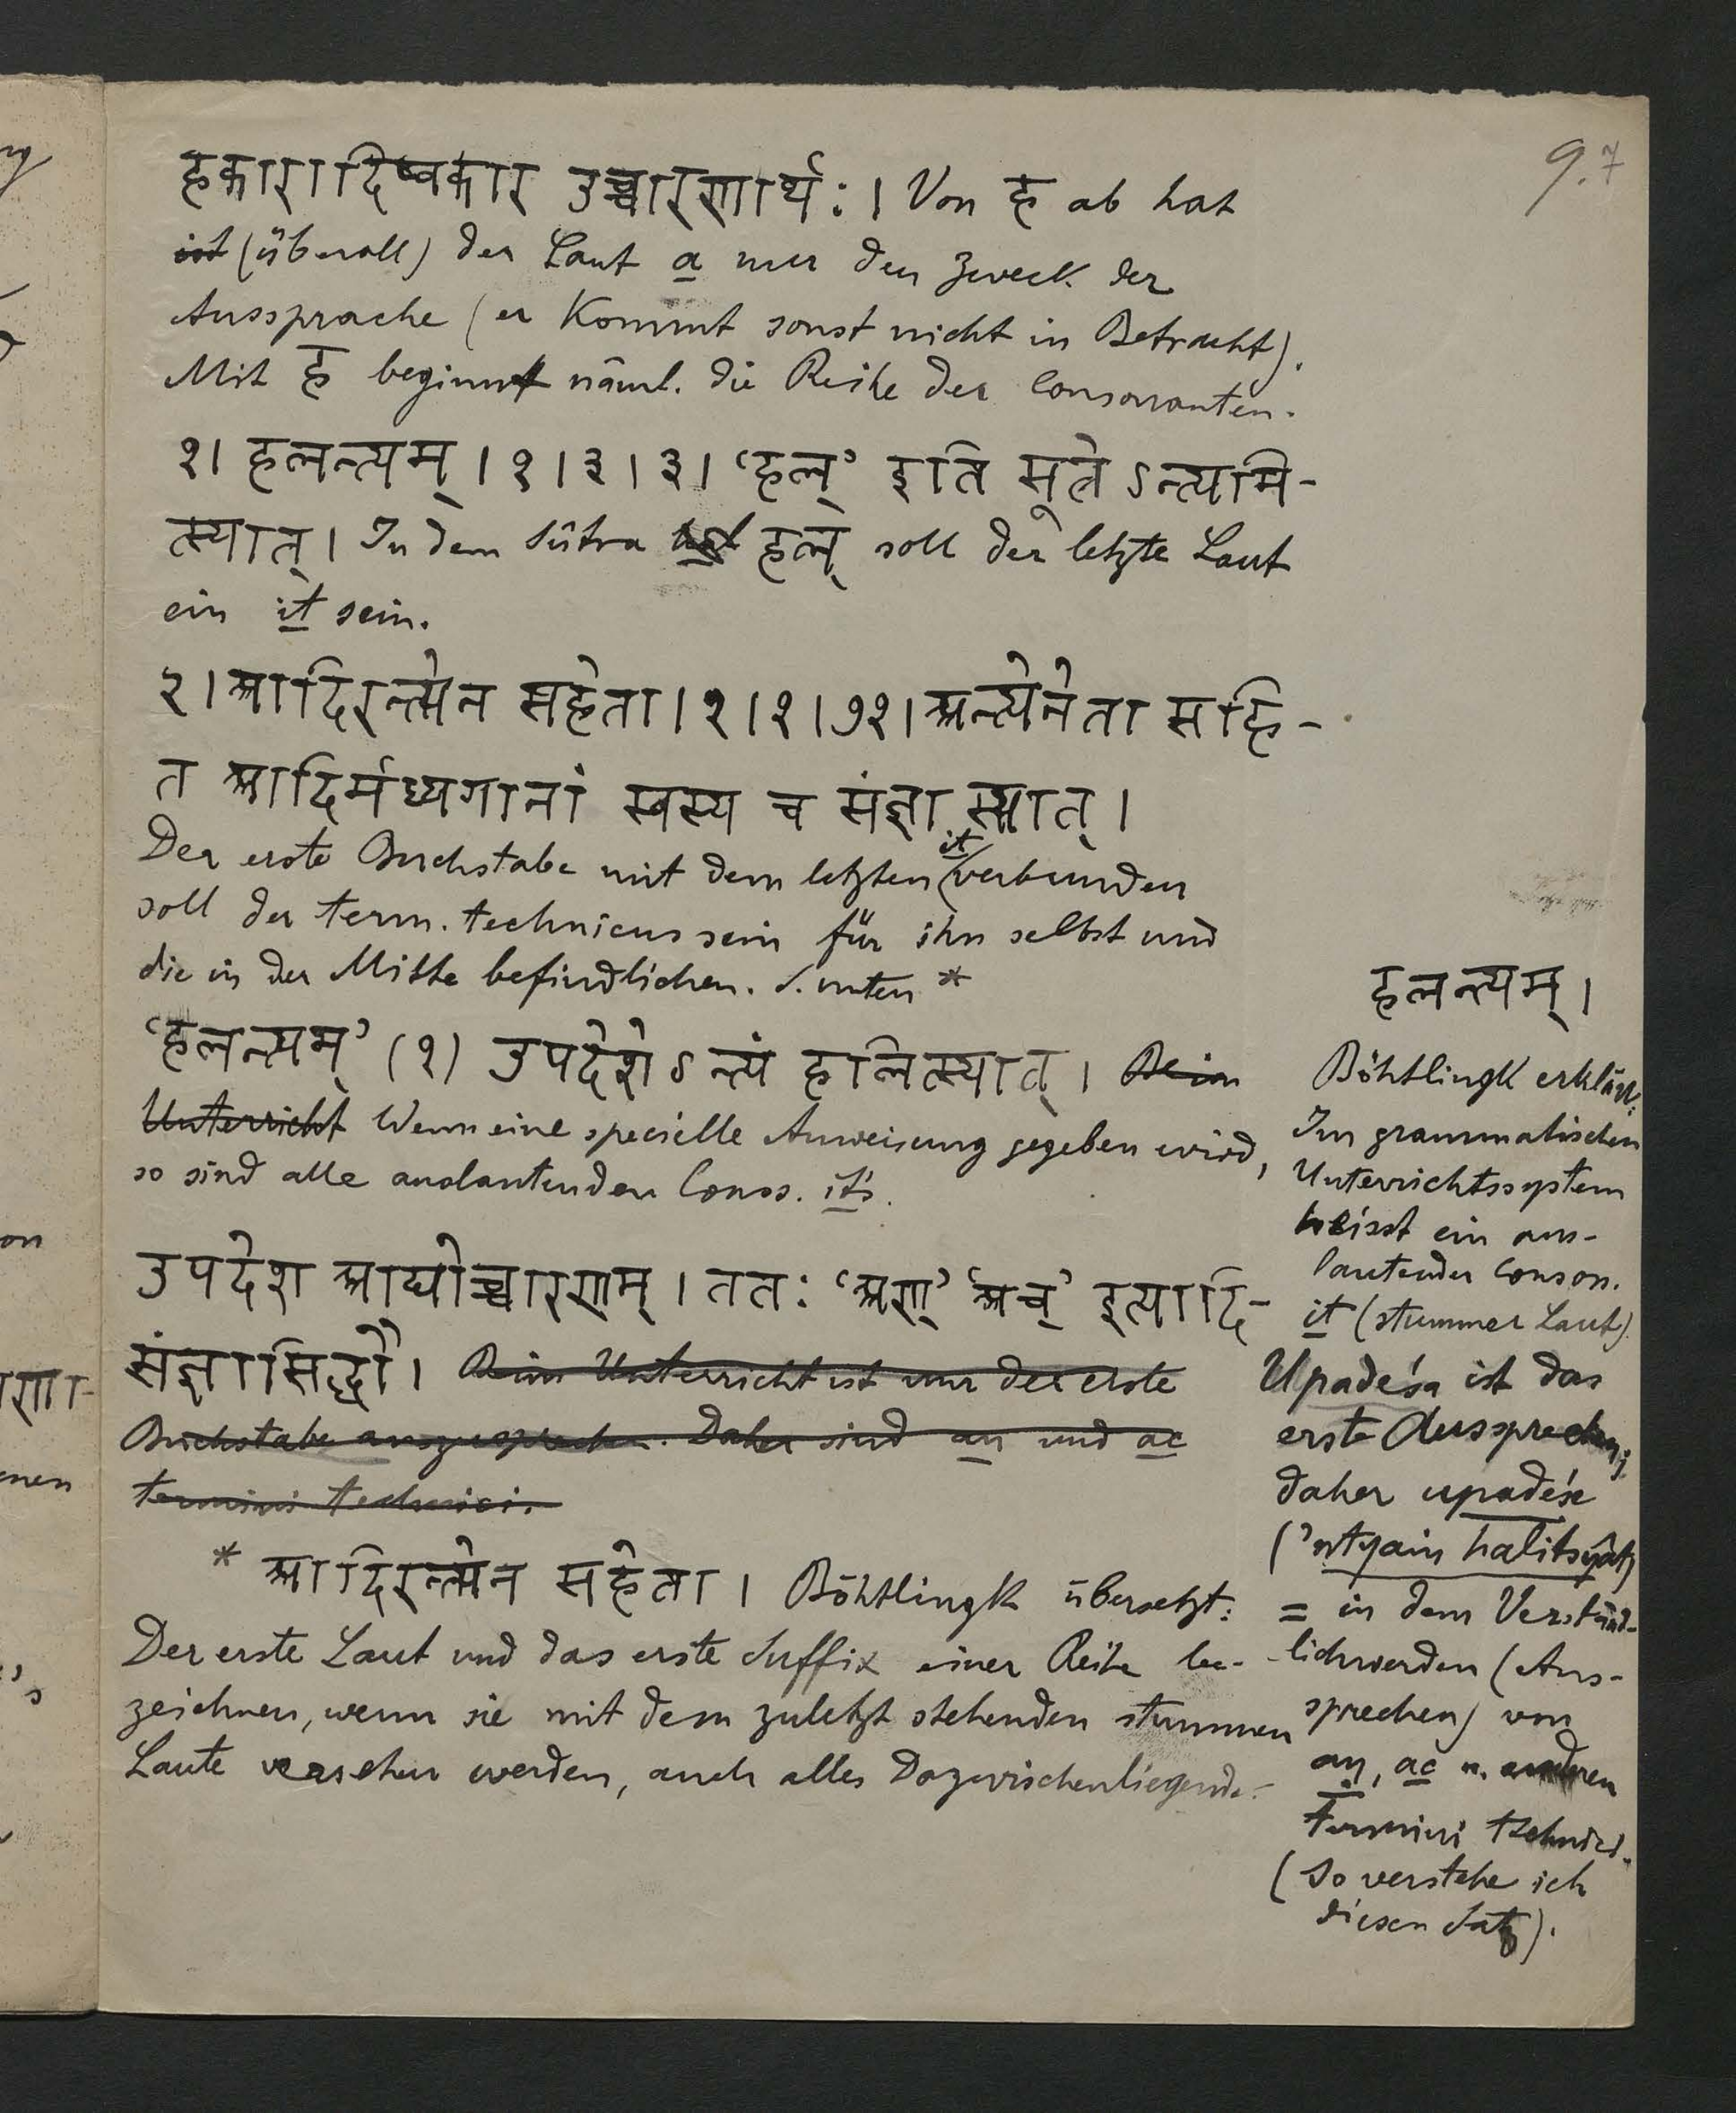 9.7
हकारादिष्वकार उच्चारणार्थः। Von ह ab hat
ist (überall) der Laut a nur den Zweck der
Aussprache (er kommt sonst nicht in Betracht).
Mit ह beginnt näml. die Reihe der Consonanten.
१। हलन्त्यम्। १।३।३। ‘हल्’ इति सूत्रेऽन्त्यमि-
त्स्यात्। In dem Sûtra हल् soll der letzte Laut
ein it sein.
२। आदिरन्त्येन सहेता। १।१।७१। अन्त्येनेता सहि-
त आदिर्मध्यगानां स्वस्य च संज्ञा स्यात्।
Der erste Buchstabe mit dem letzten it verbunden
soll der term. technicus sein für ihn selbst und
die in der Mitte befindlichen. S. unten *
‘हलन्त्यम्’ (१) उपदेशेऽन्त्यं हलित्स्यात्। Beim
Unterricht Wenn eine specielle Anweisung gegeben wird,
so sind alle auslautenden Conss. it's.
उपदेश आद्योच्चारणम्। ततः ‘अण्’ ‘अच्’ इत्यादि-
संज्ञासिद्धौ। Beim Unterricht ist nur der erste
Buchstabe auszusprechen. Daher sind aṇ und ac
termini technici.
* आदिरन्त्येन सहेता। Böhtlingk übersetzt:
Der erste Laut und das erste Suffix einer Reihe be-
zeichnen, wenn sie mit dem zuletzt stehenden stummen
Laute versehen werden, auch alles Dazwischenliegende.
हलन्त्यम्।
Böhtlingk erklärt:
Im grammatischen
Unterrichtssystem
heisst ein aus-
lautender Conson.
it (stummer Laut).
Upadeśa ist das
erste Aussprechen;
daher upadeśe
('ntyaṃ halitsyât)
= in dem Verständ-
lichwerden (Aus-
sprechen) von
aṇ, ac u. anderen
termini technici.
(So verstehe ich
diesen Satz).